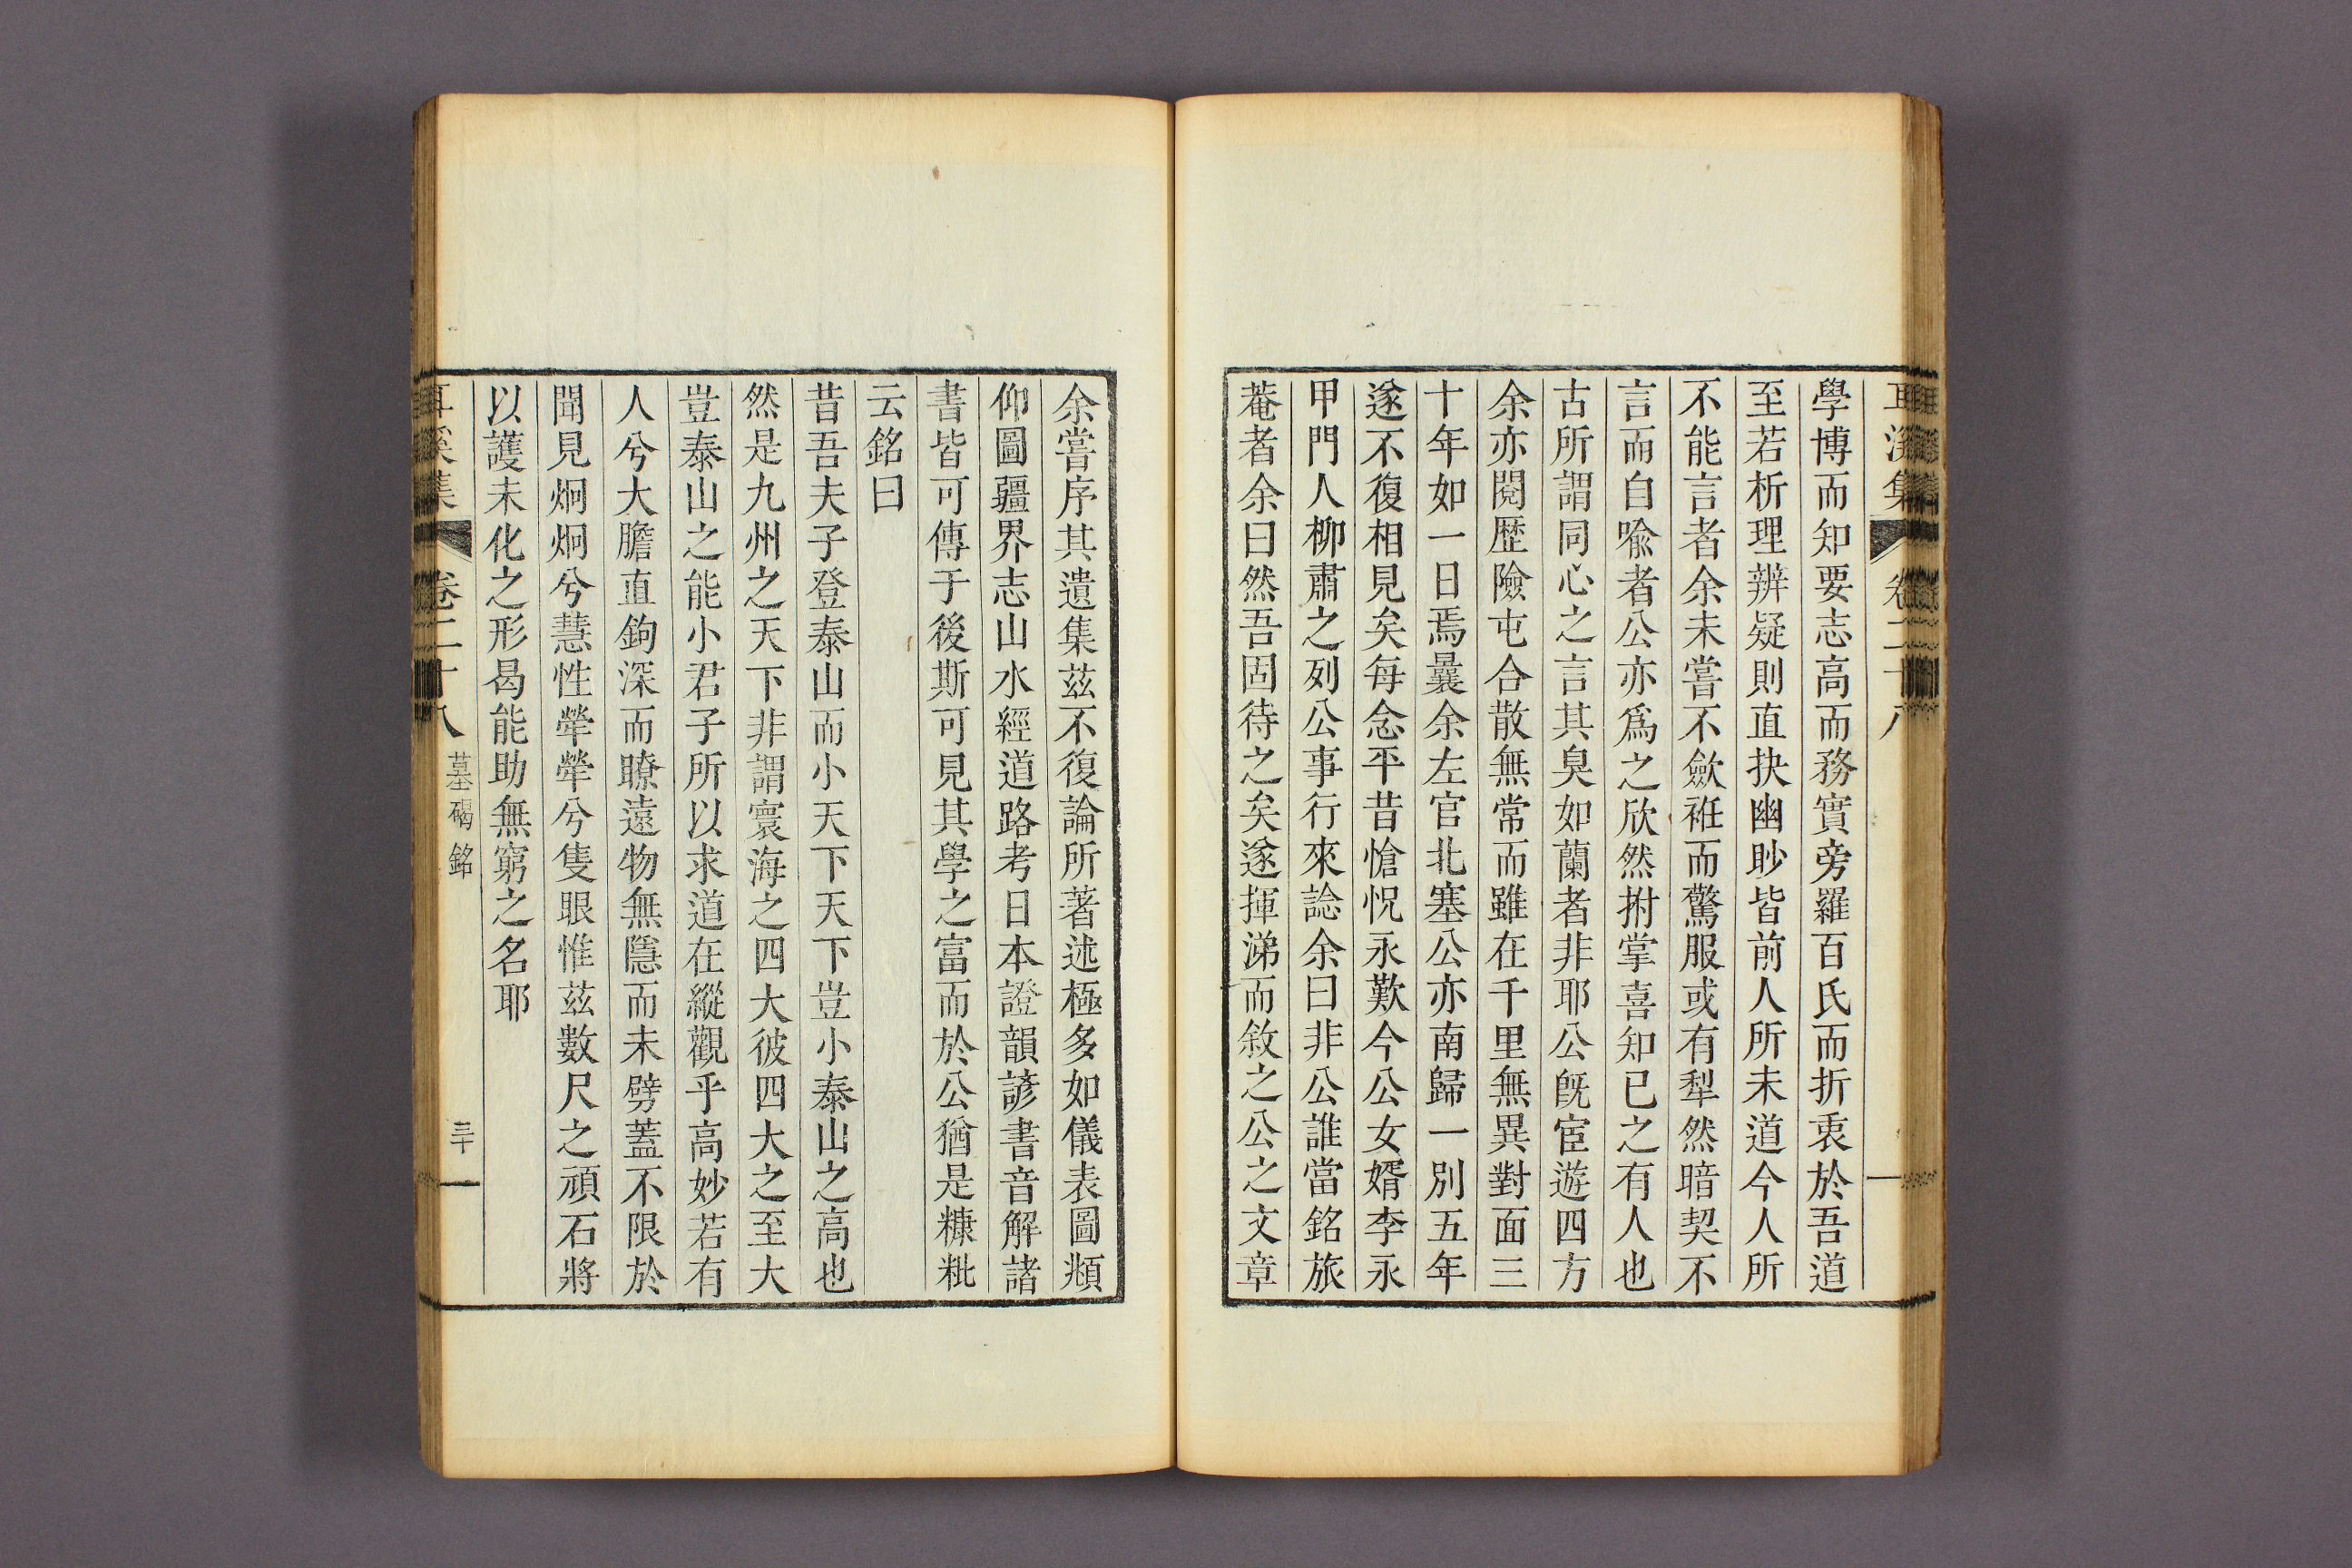 耳溪集 卷二十八
學博而知要志高而務實旁羅百氏而折衷於吾道
至若析理辨疑則直抉幽眇皆前人所未道今人所
不能言者余未嘗不斂袵而驚服或有犁然暗契不
言而自喩者公亦爲之欣然拊掌喜知已之有人也
古所謂同心之言其臭如蘭者非耶公旣宦遊四方
余亦閱歷險屯合散無常而雖在千里無異對面三
十年如一日焉曩余左官北塞公亦南歸一別五年
遂不復相見矣每念平昔愴怳永歎今公女婿李永
甲門人柳肅之列公事行來諗余曰非公誰當銘旅
菴者余曰然吾固待之矣遂揮涕而敘之公之文章
余嘗序其遺集茲不復論所著述極多如儀表圖頫
仰圖疆界志山水經道路考日本證韻諺書音解諸
書皆可傳于後斯可見其學之富而於公猶是糠粃
云銘曰
昔吾夫子登泰山而小天下天下豈小泰山之高也
然是九州之天下非謂寰海之四大彼四大之至大
豈泰山之能小君子所以求道在縱觀乎高妙若有
人兮大膽直鉤深而瞭遠物無隱而未劈蓋不限於
聞見炯炯兮慧性犖犖兮隻眼惟茲數尺之頑石將
以護未化之形曷能助無窮之名耶
耳溪集 卷二十八 墓碣銘 三十